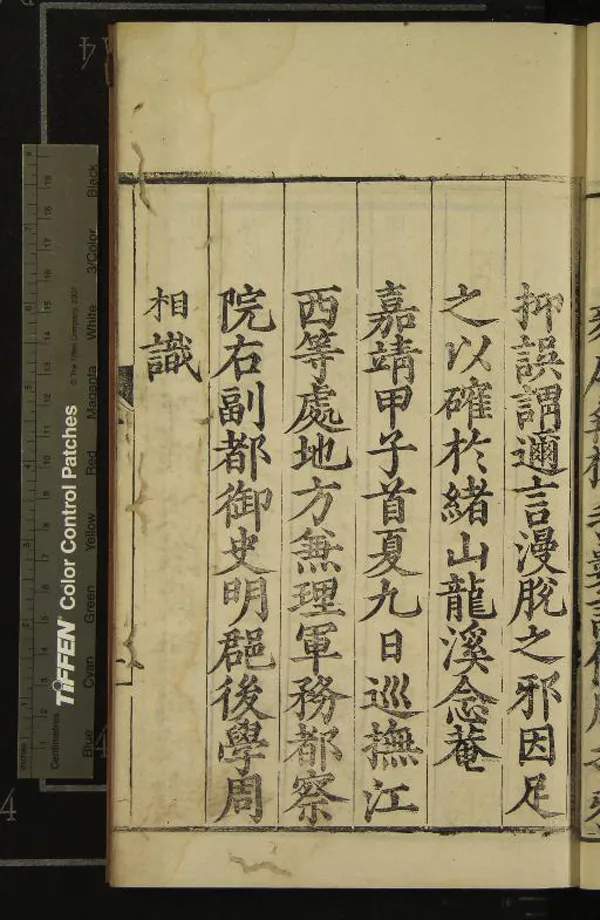 抑誤謂邇言漫脫之邪因足
之以確於緒山龍溪念菴
嘉靖甲子首夏九日巡撫江
西等處地方兼理軍務都察
院右副都御史明郡後學周
相識
TIFFEN Color Control Patches
© The Tiffen Company, 2007
Centimetres
Inches
Blue
Cyan
Green
Yellow
Red
Magenta
White
3/Color
Black